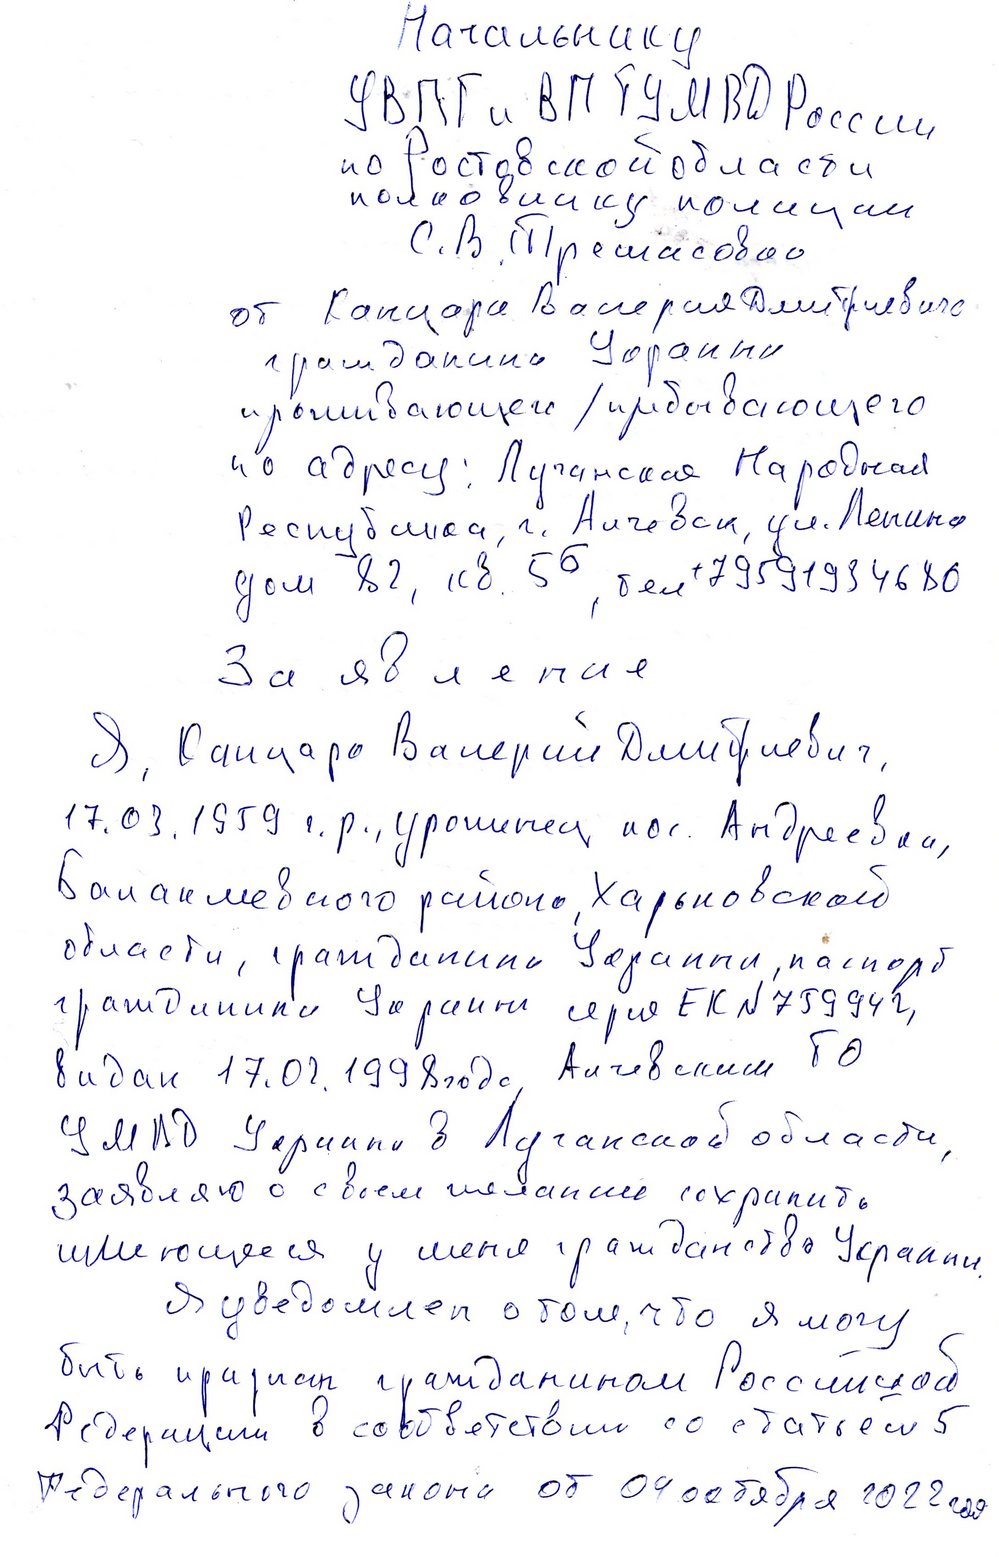 Начальнику
УВПГ и ВП ГУ МВД России
по Ростовской области
полковнику полиции
С.В.
от Канцара Валерия Дмитриевича
гражданина Украины
проживающего / прибывающего
по адресу: Луганская Народная
Республика, г. Алчевск, ул. Ленина
дом 82, кв. 56, тел +79591934680
Заявление
Я, Канцара Валерий Дмитриевич,
17.03.1959 г.р., уроженец пос. Андреевка,
Балаклеевского района, Харьковской
области, гражданина Украины, паспорт
гражданина Украины серия ЕК N 759942,
видан 17.02.1998 года, Алчевским ГО
УМВД Украины в Луганской области,
заявляю о своем желании сохранить
имеющееся у меня гражданство Украины.
Я уведомлен о том, что я могу
быть признан гражданином Российской
Федерации в соответствии со статьей 5
Федерального закона от 04 октября 2022 года